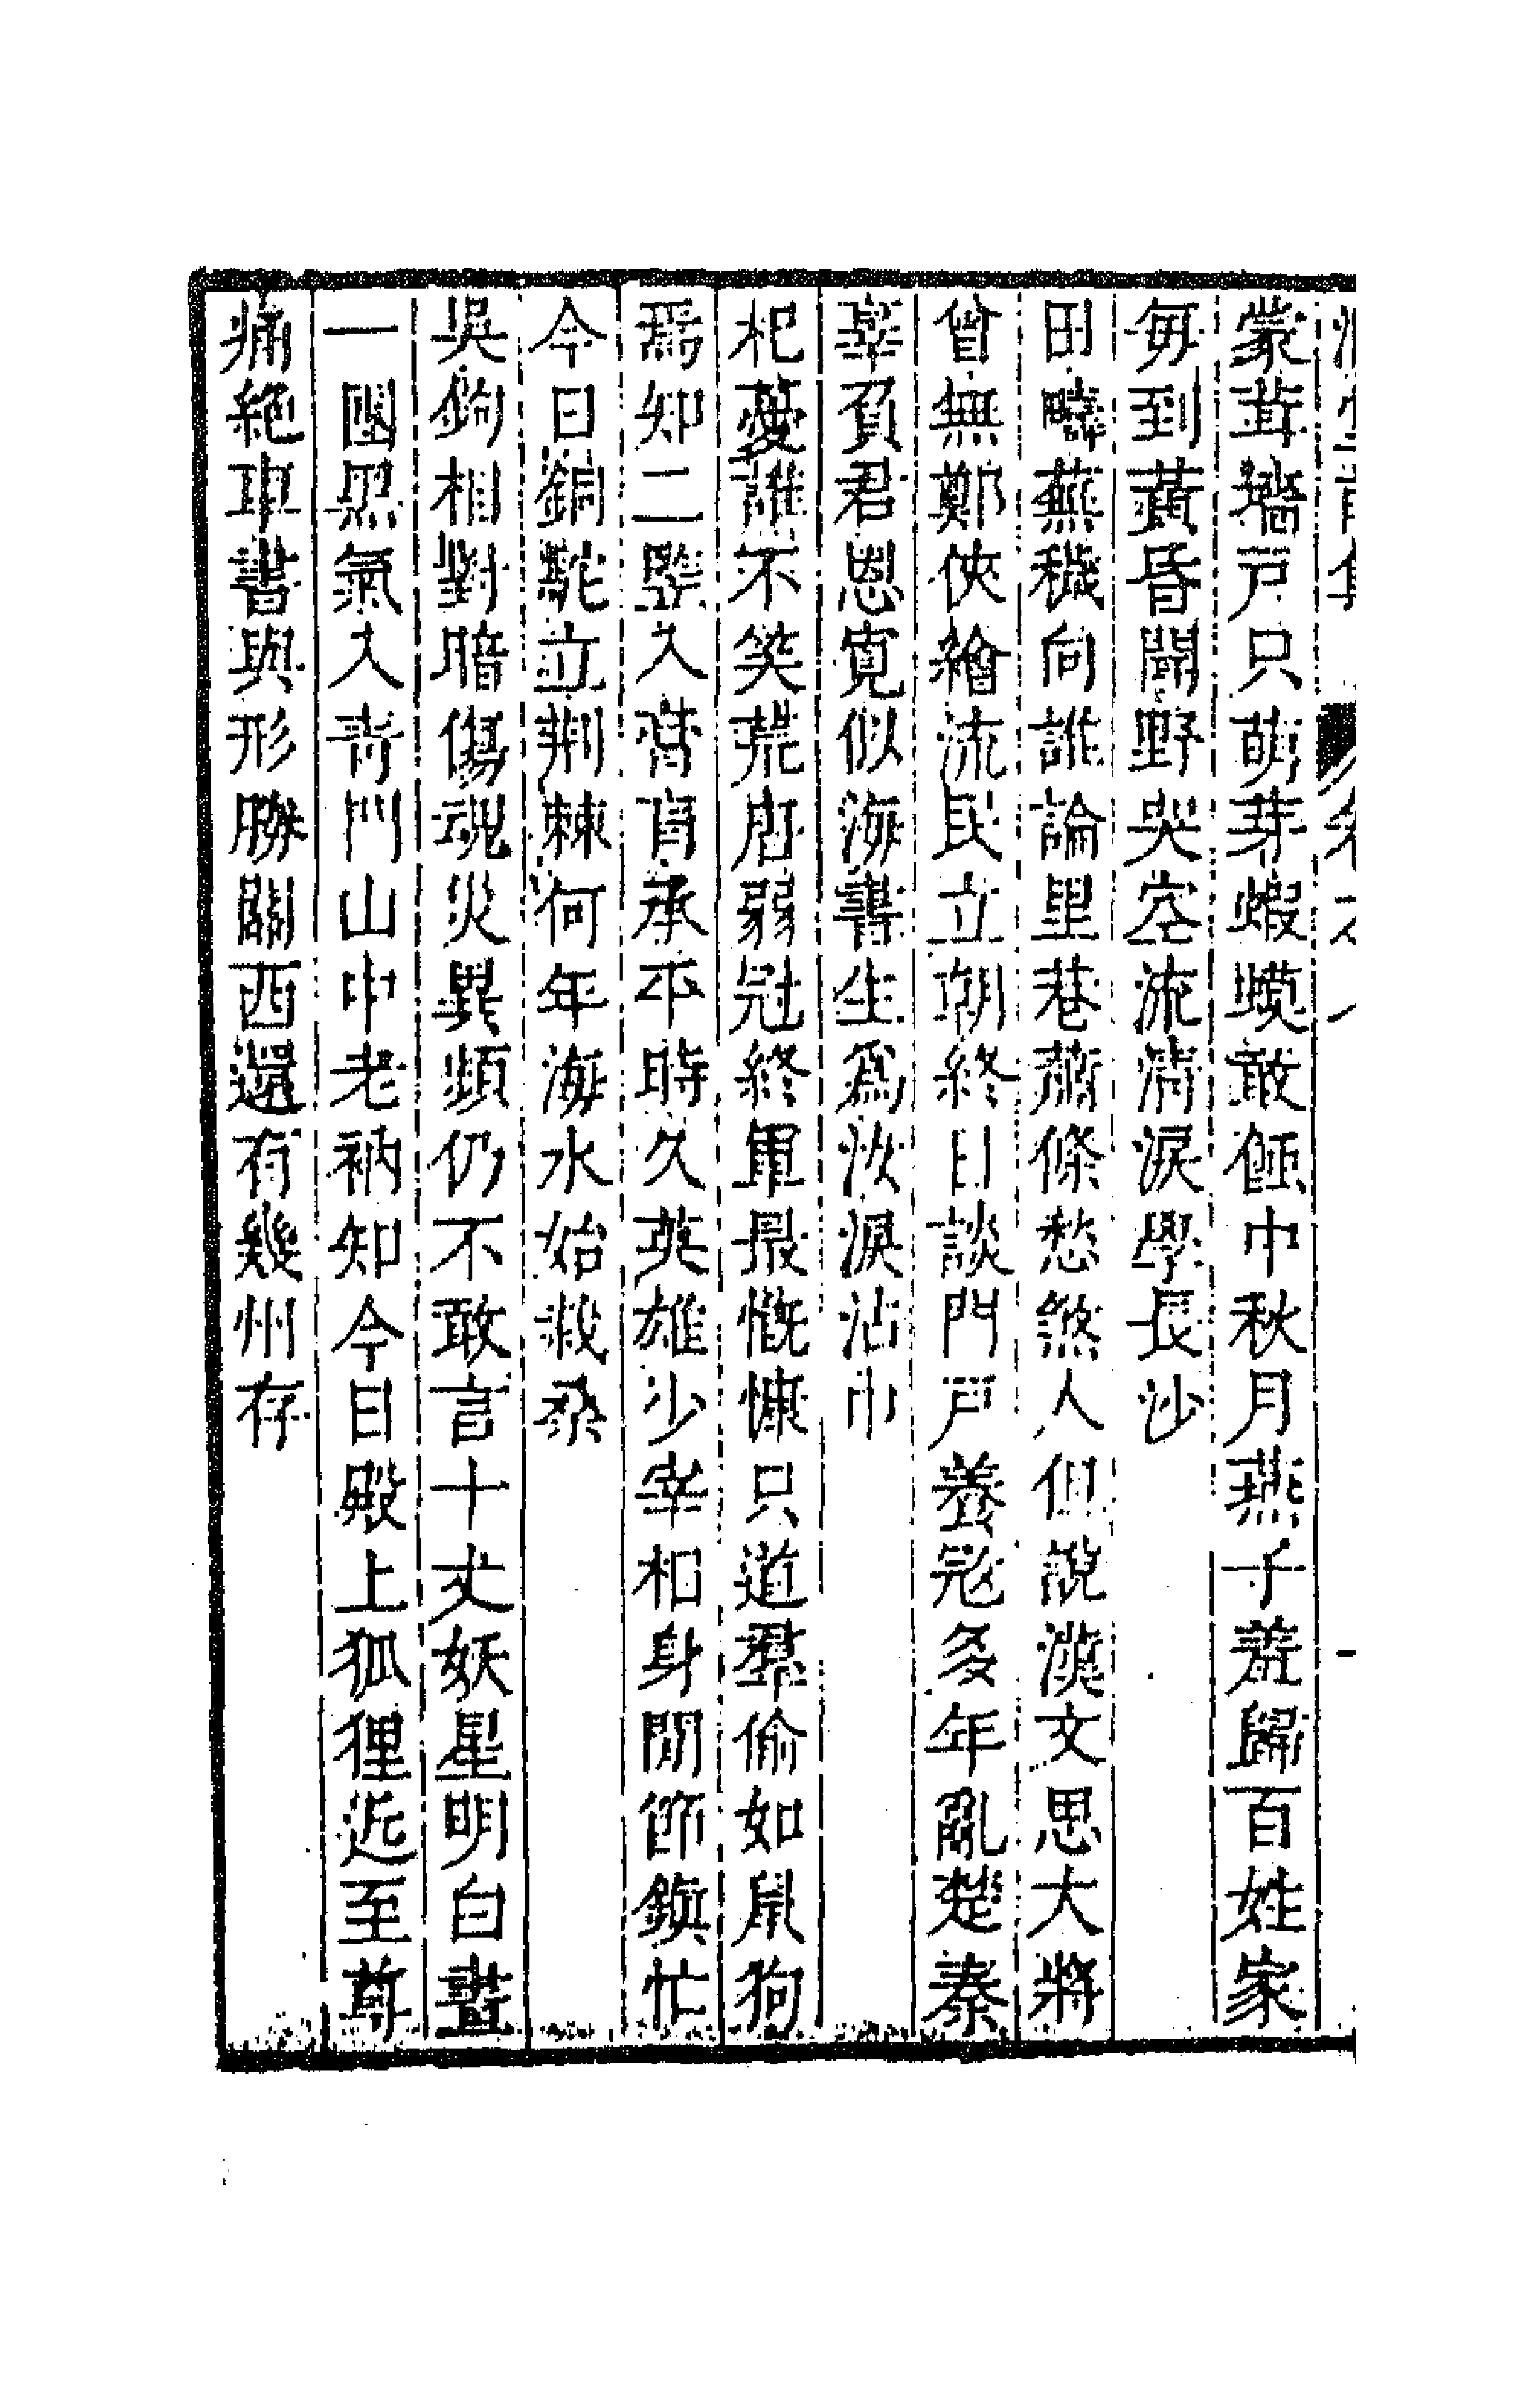 蒙茸牆戶只萌芽蝦蟆敢蝕中秋月燕子羞歸百姓家
每到黃昏聞野哭空流淸淚學長沙
田疇蕪穢向誰論里巷蕭條愁煞人但說漢文思大將
曾無鄭俠繪流民立朝終日談門戶養寇多年亂楚秦
辜負君恩寬似海書生爲汝淚沾巾
杞憂誰不笑荒唐弱冠終軍最慨慷只道羣偷如鼠狗
焉知二豎入膏肓承平時久英雄少宰相身閒節鎭忙
今日銅駝立荆棘何年海水始栽桑
吳鉤相對暗傷魂災異頻仍不敢言十丈妖星明白晝
一團黑氣入靑門山中老衲知今日殿上狐狸近至尊
痛絕車書與形勝關西還有幾州存